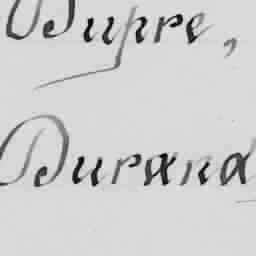 Dupre,
Durand